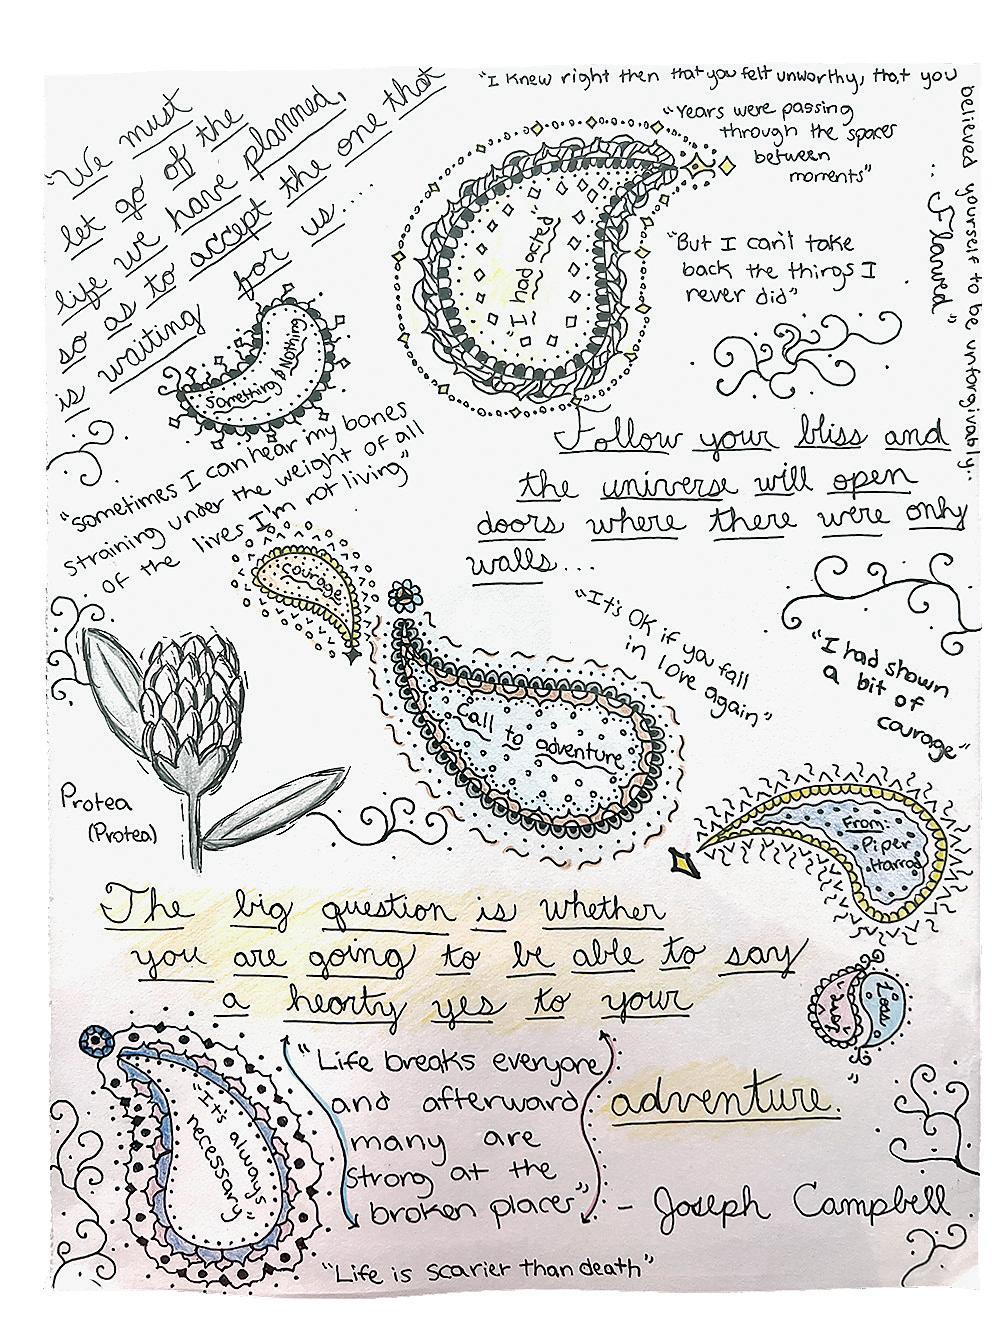 "We must
let go of the
life we have planned,
so as to accept the one that
is waiting for us...
"I knew right then that you felt unworthy, that you
believed yourself to be unforgivably..
..Flawed"
"Years were passing
through the spaces
between
moments"
"I had
passed"
"But I can't take
back the things I
never did"
Something & Nothing
"sometimes I can hear my bones
straining under the weight of all
of the lives I'm not living"
Follow your bliss and
the universe will open
doors where there were only
walls...
courage
"It's OK if you fall
in love again"
"I had shown
a bit of
courage"
Call to adventure
Protea
(Protea)
From:
Piper
Harrad
The big question is whether
you are going to be able to say
a hearty yes to your
adventure.
Love
Loss
"It's always
necessary"
"Life breaks everyone
and afterward
many are
strong at the
broken places"
- Joseph Campbell
"Life is scarier than death"